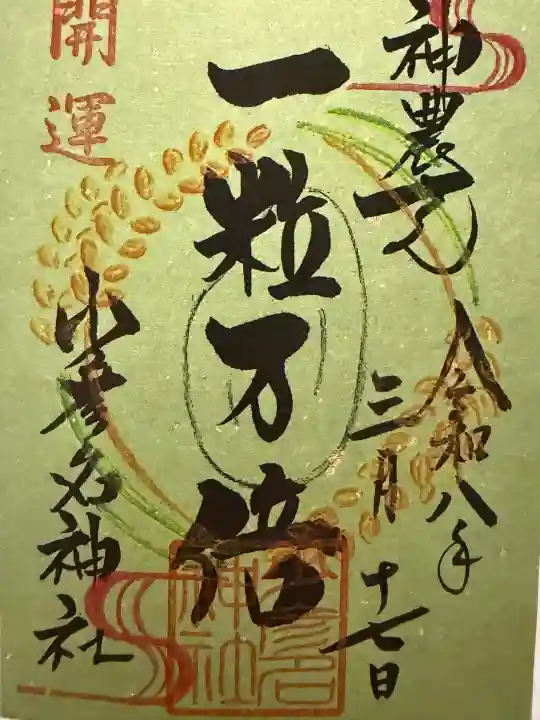 神農さん
令和八年
三月十七日
一粒万倍
開運
少彦名神社
少彦名
神社